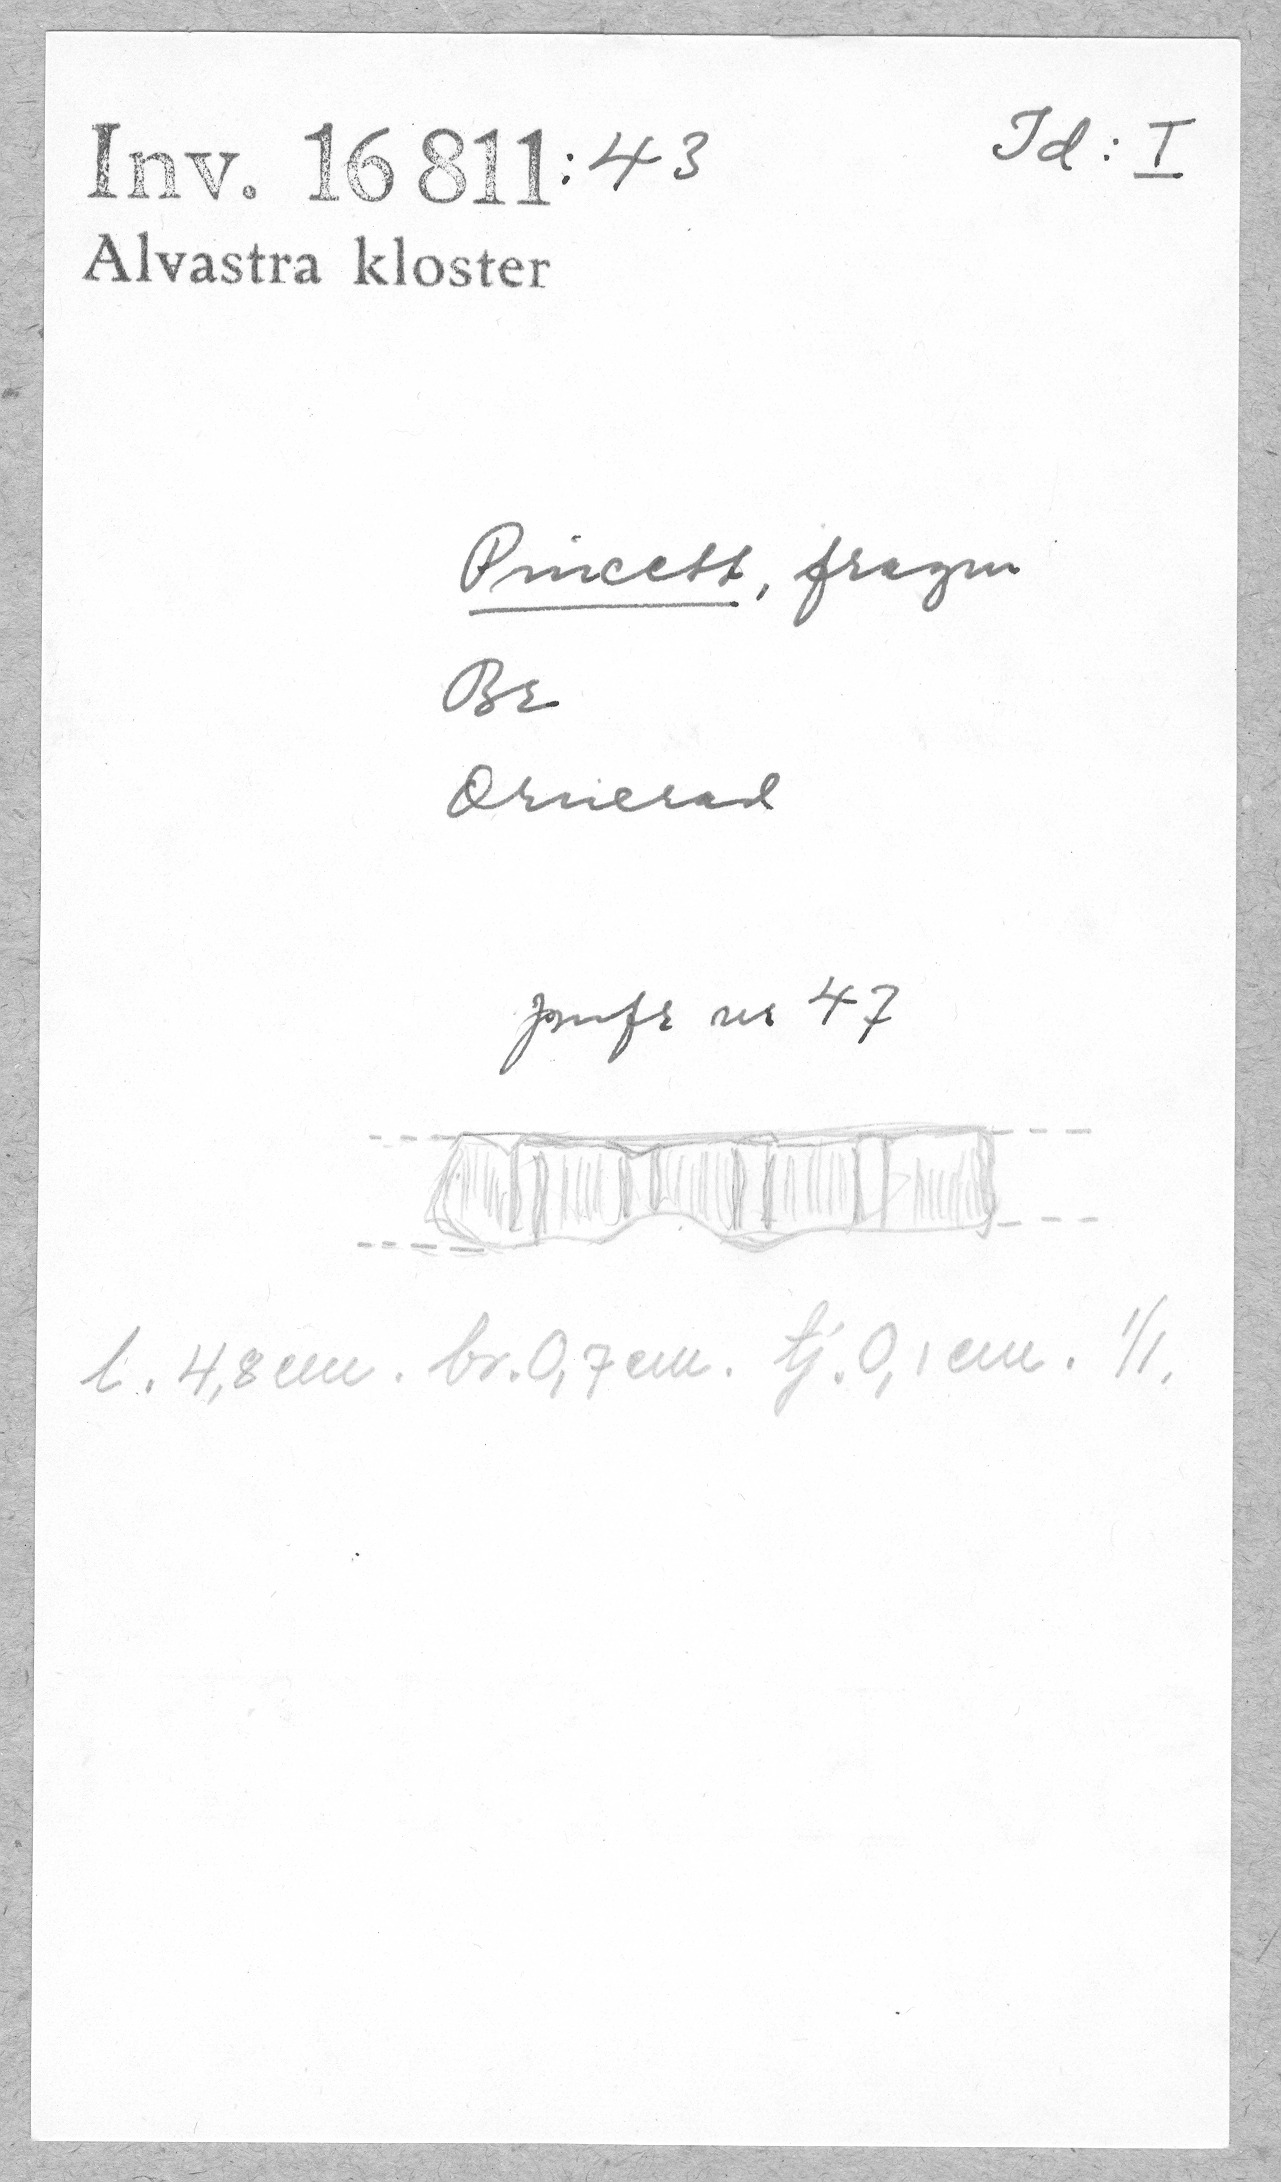 Inv. 16 811:43
Id: I
Alvastra kloster
Pincett, fragm
Br
Ornerad
Jmfr nr 47
l. 4,8 cm. br. 0,7 cm. tj. 0,1 cm. 1/1.